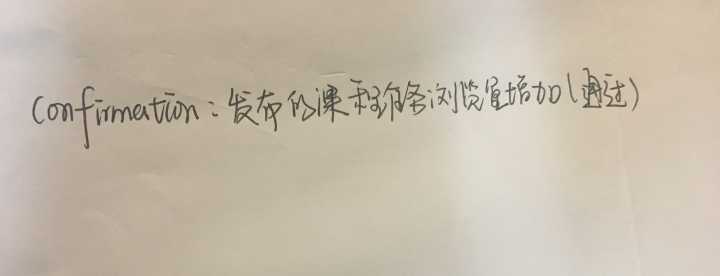 Confirmation：发布的课程任务浏览量增加（通过）